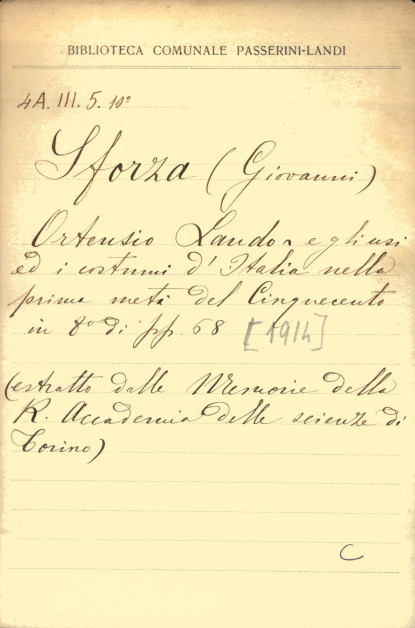 BIBLIOTECA COMUNALE PASSERINI-LANDI
4A. III. 5. 10²
Sforza (Giovanni)
Ortensio Lando e gli usi
ed i costumi d'Italia nella
prima metà del Cinquecento
in 8° di pp. 68 [1914]
(estratto dalle Memorie della
R. Accademia delle scienze di
Torino)
C